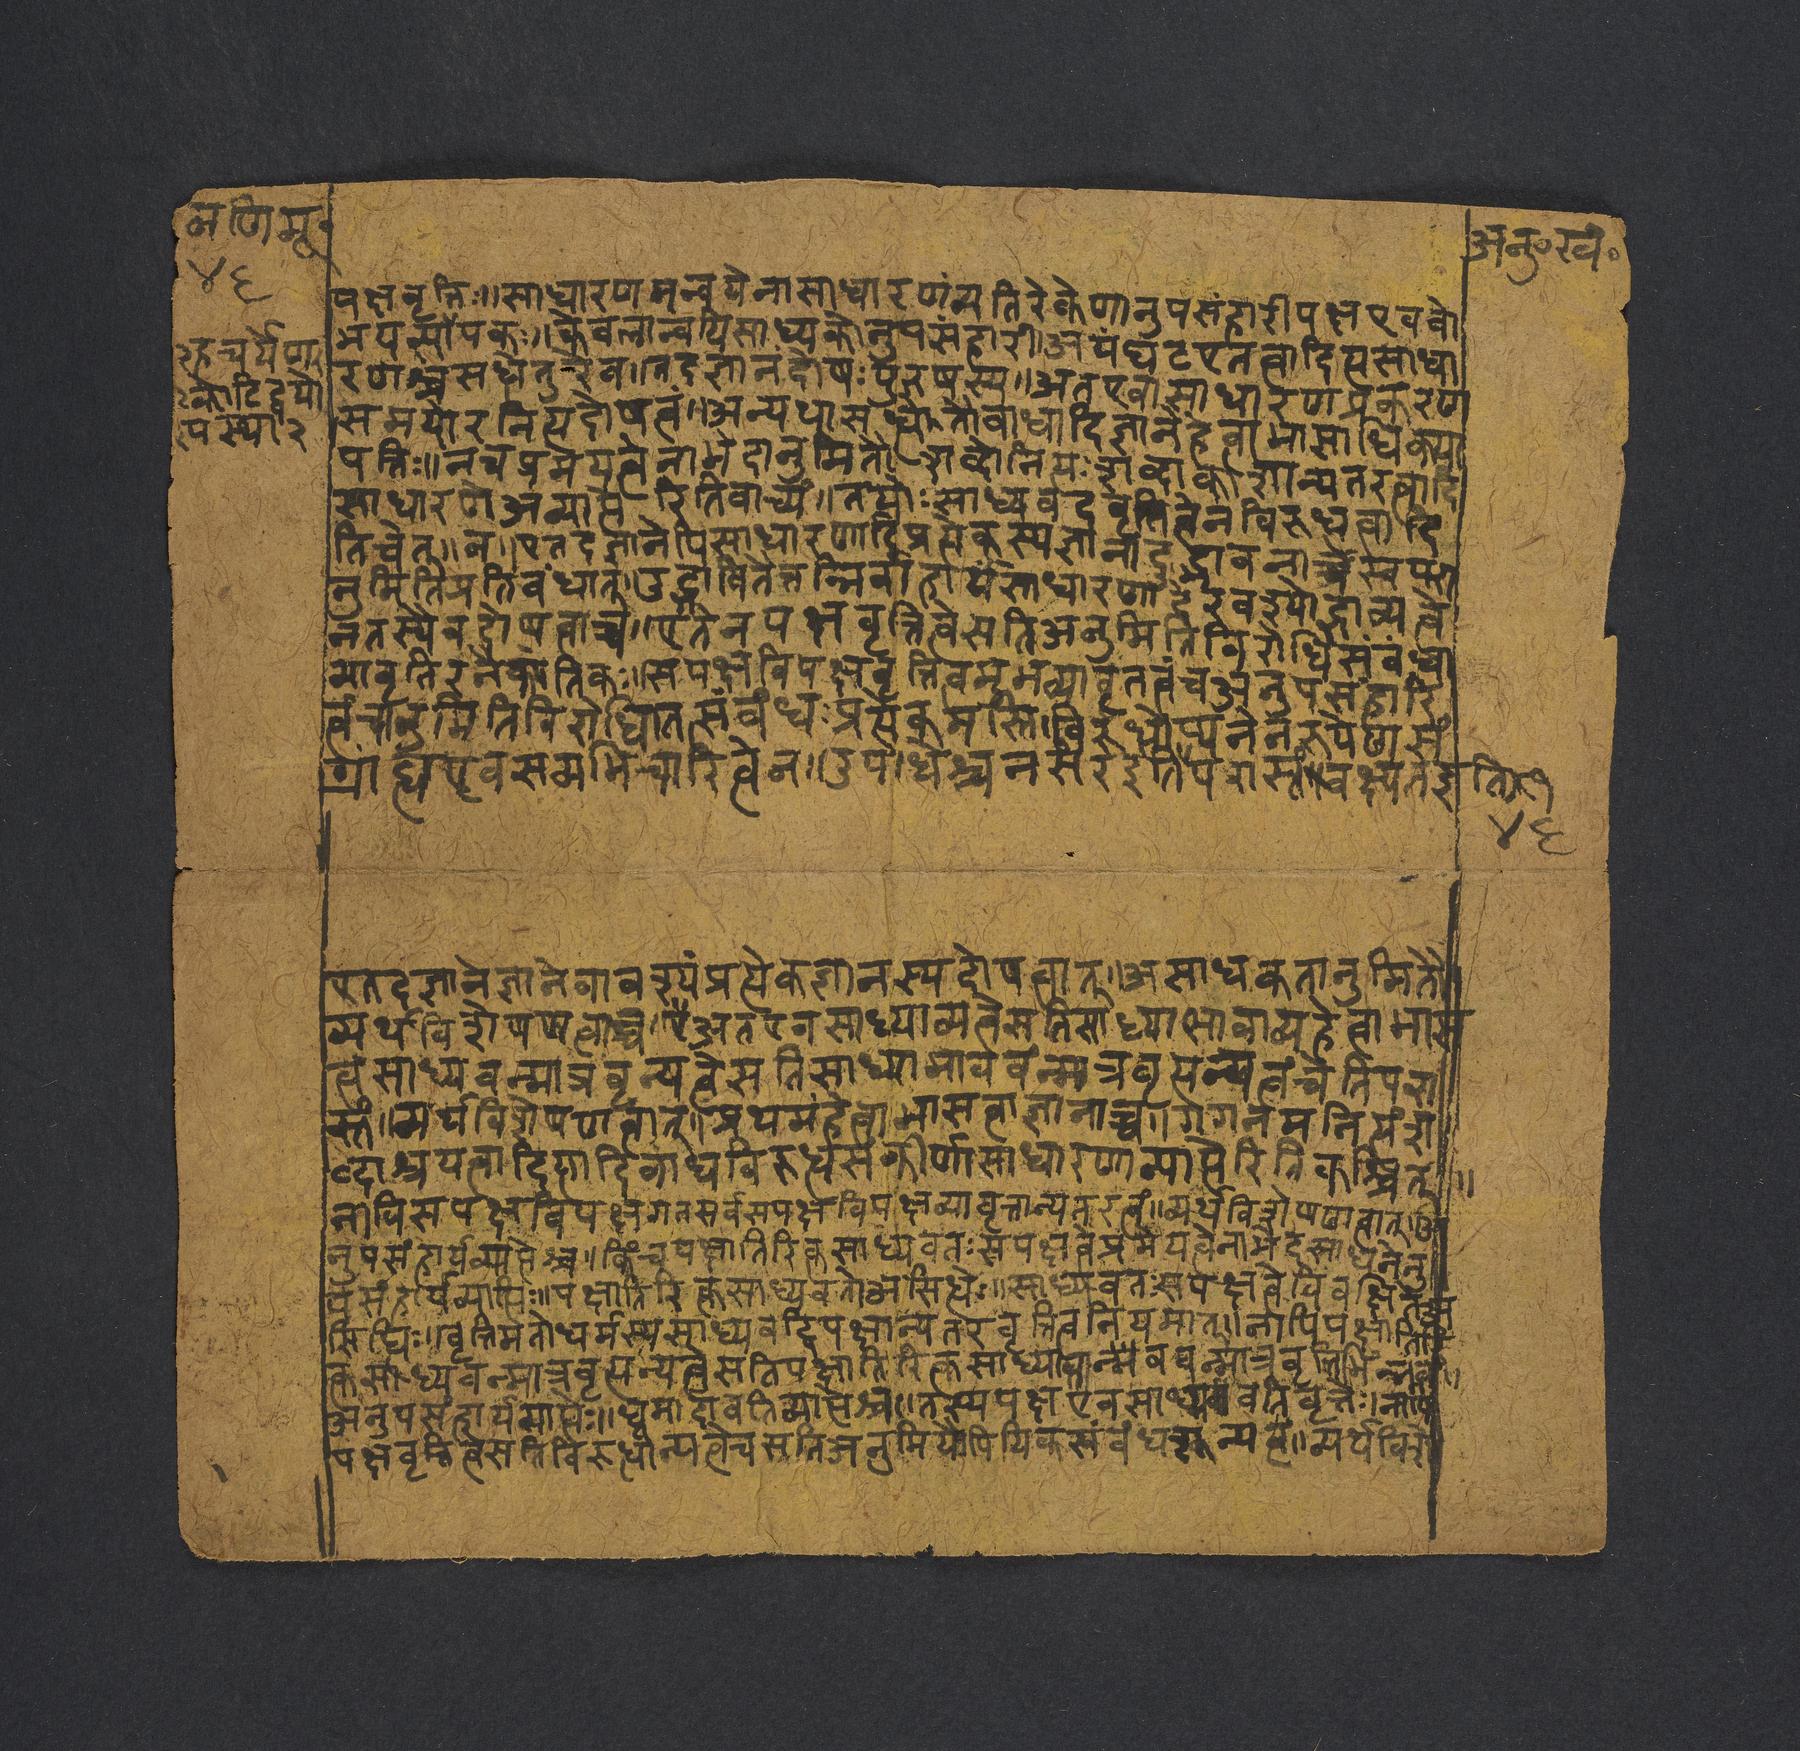 मणिमू॰
४६
अनु॰ खं॰
पक्षवृत्तिः॥साधारणमन्वयेनासाधारणंव्यतिरेकेणानुपसंहारीपक्षएववो
भयंसौपकः॥केवलान्वयिसाध्यकोनुपसंहारी॥अयंघटएतत्वादित्यसाधा
हचर्येण
कोटिद्वयो
पस्था
रणश्चसधेतुरेव॥तदज्ञानंदोषःपुरुषस्य॥अतएवासाधारणप्रकरण
समयोरनित्यदोषत्वं॥अन्यथासध्येतोवाधादिज्ञानेहेत्वाभासाधिक्या
पत्तिः॥नचप्रमेयत्वेनाभेदानुमितौशब्दोनित्यःशब्दाकाशान्यतरत्वादि
साधारणेअव्याप्तेरितिवाच्यं॥तयोःसाध्यवदवृत्तित्वेनविरुध्यत्वादि
तिचेत्॥न॥एतदज्ञानेपिसाधारणादिप्रत्येकस्यज्ञानादुद्भावनाच्चस्वपरा
नुमितिप्रतिबंधात्॥उद्भावितेतन्निर्वाहार्यंसाधारणादेरवश्योद्भाव्यत्वे
नतस्यैवदोषत्वाच्च॥एतेनपक्षवृत्तित्वेसतिअनुमितिविरोधिसंबंध्या
व्यावृत्तिरनैकांतिकः॥सपक्षविपक्षवृत्तित्वमुभयव्यावृतत्वंचअनुपसंहारि
त्वंचानुमितिविरोधितत्संबंधःप्रत्येकमस्ति॥विरुध्धोप्यनेनरूपेणसं
ग्राह्यएवसव्यभिचारित्वेन॥उपाधेश्चनसंरइतिपरास्तं॥वक्ष्यतेइति
४६
एतदज्ञानेज्ञानेवावश्यंप्रत्येकज्ञानस्यदोषत्वात्॥असाधकतानुमितौ
व्यर्थविशेषणत्वाच्च॥अतएवसाध्याव्याप्यत्वेसतिसाध्याभावाव्याप्यहेत्वाभास
त्वंसाध्यवन्मात्रवृत्यन्यत्वेसतिसाध्याभाववंन्मात्रवृत्यन्यत्वंचेतिपरा
स्तं॥व्यर्थविशेषणत्वात्॥प्रथमंहेत्वाभासत्वाज्ञानाच्च॥गगनमनित्यंश
ब्दाश्रयत्वादित्यादिबाधविरुध्धसंकीर्णासाधारणाव्याप्तेरितिकश्चित्॥
नापिसपक्षविपक्षगतसर्वसपक्षविपक्षव्यावृत्तान्यतरत्वं॥व्यर्थविशेषणत्वात्॥अ
नुपसंहार्यव्याप्तेश्च॥किंचपक्षातिरिक्तसाध्यवतःसपक्षत्वेप्रमेयत्वेनाभेदसाधनेनु
पसंहार्यव्याप्तिः॥पक्षातिरिक्तसाध्यवतोअसिध्धेः॥साध्यवतःसपक्षत्वेविवक्षितेअ
सिध्धिः॥वृत्तिमतोधर्मस्यसाध्यवद्विपक्षान्यतरवृत्तित्वनियमात्॥नापिपक्षातिरि
क्तसाध्यवन्मात्रवृत्यन्यत्वेसतिपक्षातिरिक्तसाध्याभाववन्मात्रवृत्तिभिन्नत्वं॥
अनुपसंहार्यव्याप्तेः॥धूमादावतिव्याप्तेश्च॥तस्यपक्षएवसाध्यवतिवृत्तेः॥नापि
पक्षवृत्तित्वेसतिविरुध्धान्यत्वेचसतिअनुमित्यौपयिकसंबंधशून्यत्वं॥व्यर्थविशे